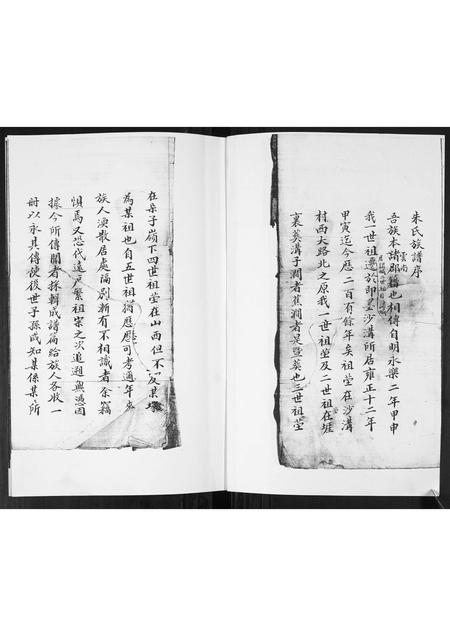 朱氏族譜序
吾族本諸郡籍也相傳自明永樂二年甲申
雲南
我一世祖遷於即墨沙溝所居雍正十二年
甲寅迄今歷二百有餘年矣祖塋在沙溝
村西大路北之原我一世祖塋及二世祖在堐
裏葵溝子澗者蕉澗者是暨葵也三世祖塋
在桑子嶺下四世祖塋在山西但不
為某祖也自五世祖猶歷歷可考邇年來
族人渙散居處隔別漸有不相識者余竊
懼焉又恐代遠戶繁祖宗之次追遡無憑因
據今所傳聞者採輯成譜篇給族人各收一
冊以永其傳使後世子孫咸知某係某所